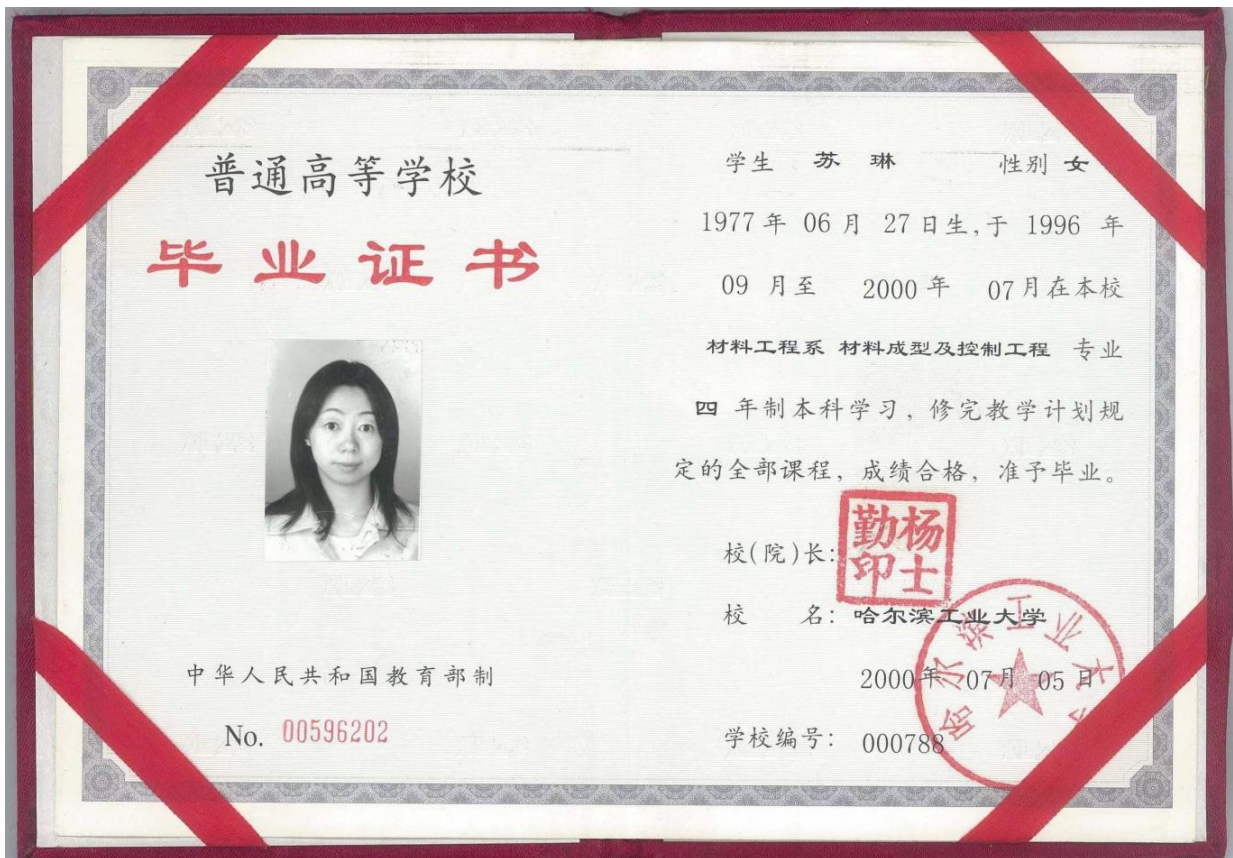 普通高等学校
毕业证书
中华人民共和国教育部制
No. 00596202
学生 苏琳 性别 女
1977年 06月 27日生,于 1996 年
09 月至 2000年 07月在本校
材料工程系 材料成型及控制工程 专业
四 年制本科学习，修完教学计划规
定的全部课程，成绩合格，准予毕业。
校(院)长:
杨士勤印
校 名: 哈尔滨工业大学
哈尔滨工业大学
2000年 07月 05日
学校编号: 000788